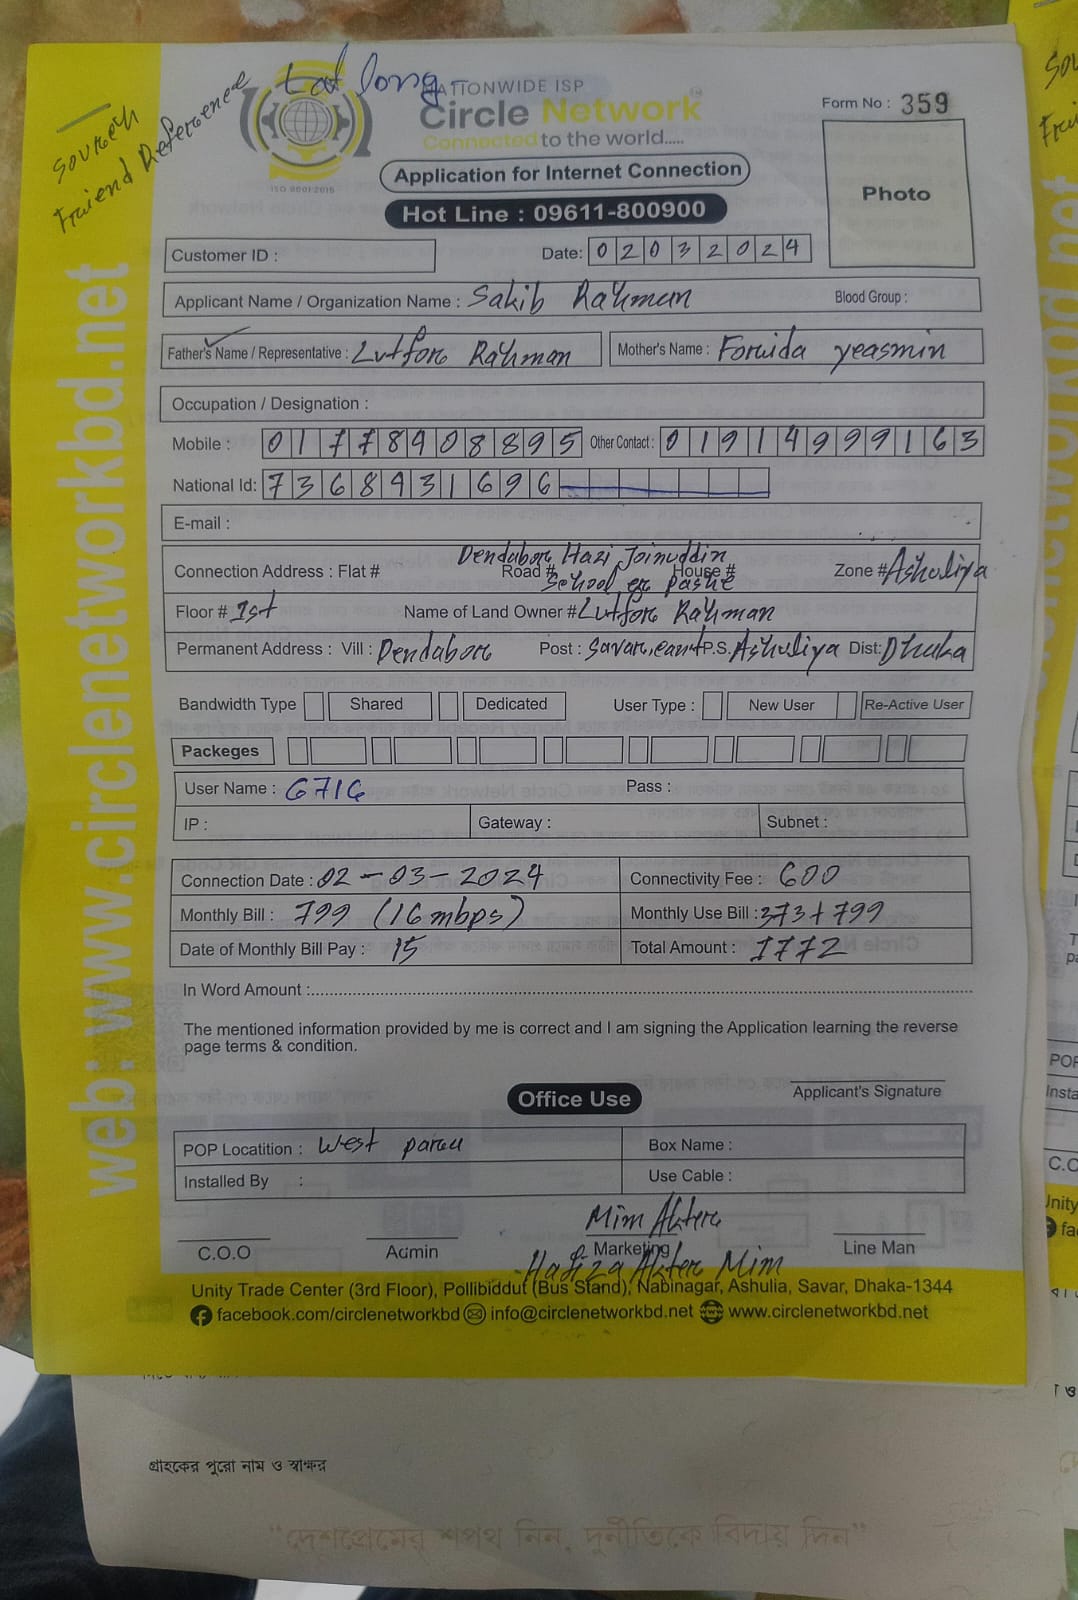 Sourcen
Fraiend Reference
Lat long
NATIONWIDE ISP
Circle Network™
Connected to the world.....
ISO 9001:2015
Application for Internet Connection
Hot Line : 09611-800900
Form No : 359
Photo
Customer ID :
Date: 02032024
Applicant Name / Organization Name : Sakib Rahman Blood Group :
Father's Name / Representative : Lutfore Rahman Mother's Name : Forida yeasmin
Occupation / Designation :
Mobile : 01778908895 Other Contact : 01914999163
National Id: 7368931696
E-mail :
Dendabore Hazi Joinuddin
Connection Address : Flat # Road # House # Zone # Ashuliya
School er Pashe
Floor # 1st Name of Land Owner # Lutfore Rahman
Permanent Address : Vill : Dendabore Post : Savar,cant P.S. Ashuliya Dist: Dhaka
Bandwidth Type Shared Dedicated User Type : New User Re-Active User
Packeges
User Name : 6716 Pass :
IP : Gateway : Subnet :
Connection Date : 02-03-2024 Connectivity Fee : 600
Monthly Bill : 799 (16mbps) Monthly Use Bill : 373+799
Date of Monthly Bill Pay : 15 Total Amount : 1772
In Word Amount :
The mentioned information provided by me is correct and I am signing the Application learning the reverse
page terms & condition.
Applicant's Signature
Office Use
POP Locatition : West para Box Name :
Installed By : Use Cable :
Mim Aktere
C.O.O Admin Marketing Line Man
Hafiza Aktere Mim
Unity Trade Center (3rd Floor), Pollibiddut (Bus Stand), Nabinagar, Ashulia, Savar, Dhaka-1344
facebook.com/circlenetworkbd info@circlenetworkbd.net www.circlenetworkbd.net
web: www.circlenetworkbd.net
গ্রাহকের পুরো নাম ও স্বাক্ষর
“দেশপ্রেমের শপথ নিন, দুর্নীতিকে বিদায় দিন”